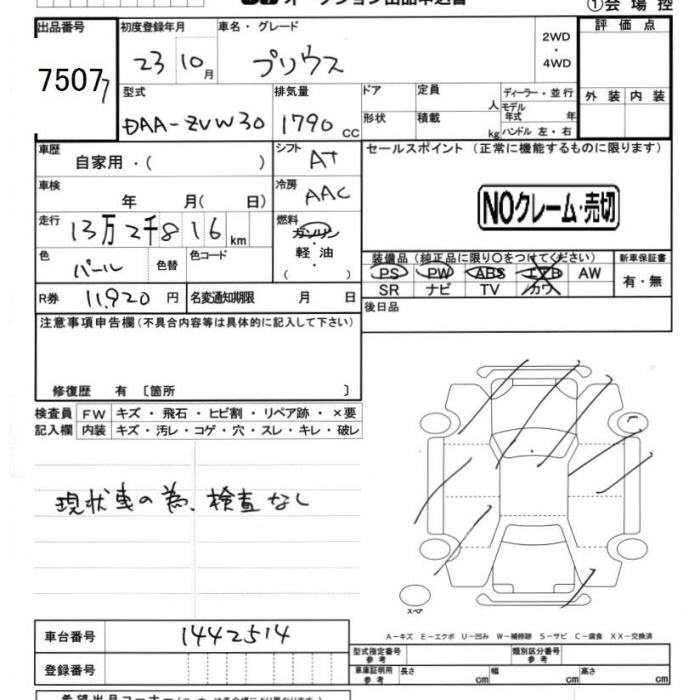 オークション出品申込書
①会場控
出品番号
7507
初度登録年月
23 10月
車名・グレード
プリウス
2WD
・
4WD
評価点
型式
DAA-ZVW30
排気量
1790 CC
ドア
定員
人
形状
積載
kg
ディーラー・並行
モデル年式 年
ハンドル 左・右
外装 内装
車歴
自家用・( )
シフト
AT
セールスポイント (正常に機能するものに限ります)
車検
年 月( 日)
冷房
AAC
NOクレーム・売切
走行
13万2千816km
燃料
ガソリン
軽油
( )
色
パール
色替
色コード
装備品(純正品に限り〇をつけてください)
新車保証書
PS PW ABS エアB AW
SR ナビ TV カワ
有・無
R券 11,920 円
名変通知期限 月 日
後日品
注意事項申告欄(不具合内容等は具体的に記入して下さい)
修復歴 有 〔箇所 〕
検査員記入欄
FW キズ・飛石・ヒビ割・リペア跡・×要
内装 キズ・汚レ・コゲ・穴・スレ・キレ・破レ
現状車の為、検査なし
スペア
A-キズ E-エクボ U-凹み W-補修跡 S-サビ C-腐食 XX-交換済
車台番号 1442514
登録番号
型式指定番号 参考
類別区分番号 参考
車庫証明用 参考
長さ cm
幅 cm
高さ cm